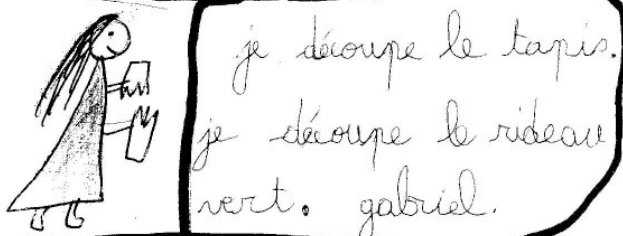 je découpe le tapis.
je découpe le rideau
vert. gabriel.